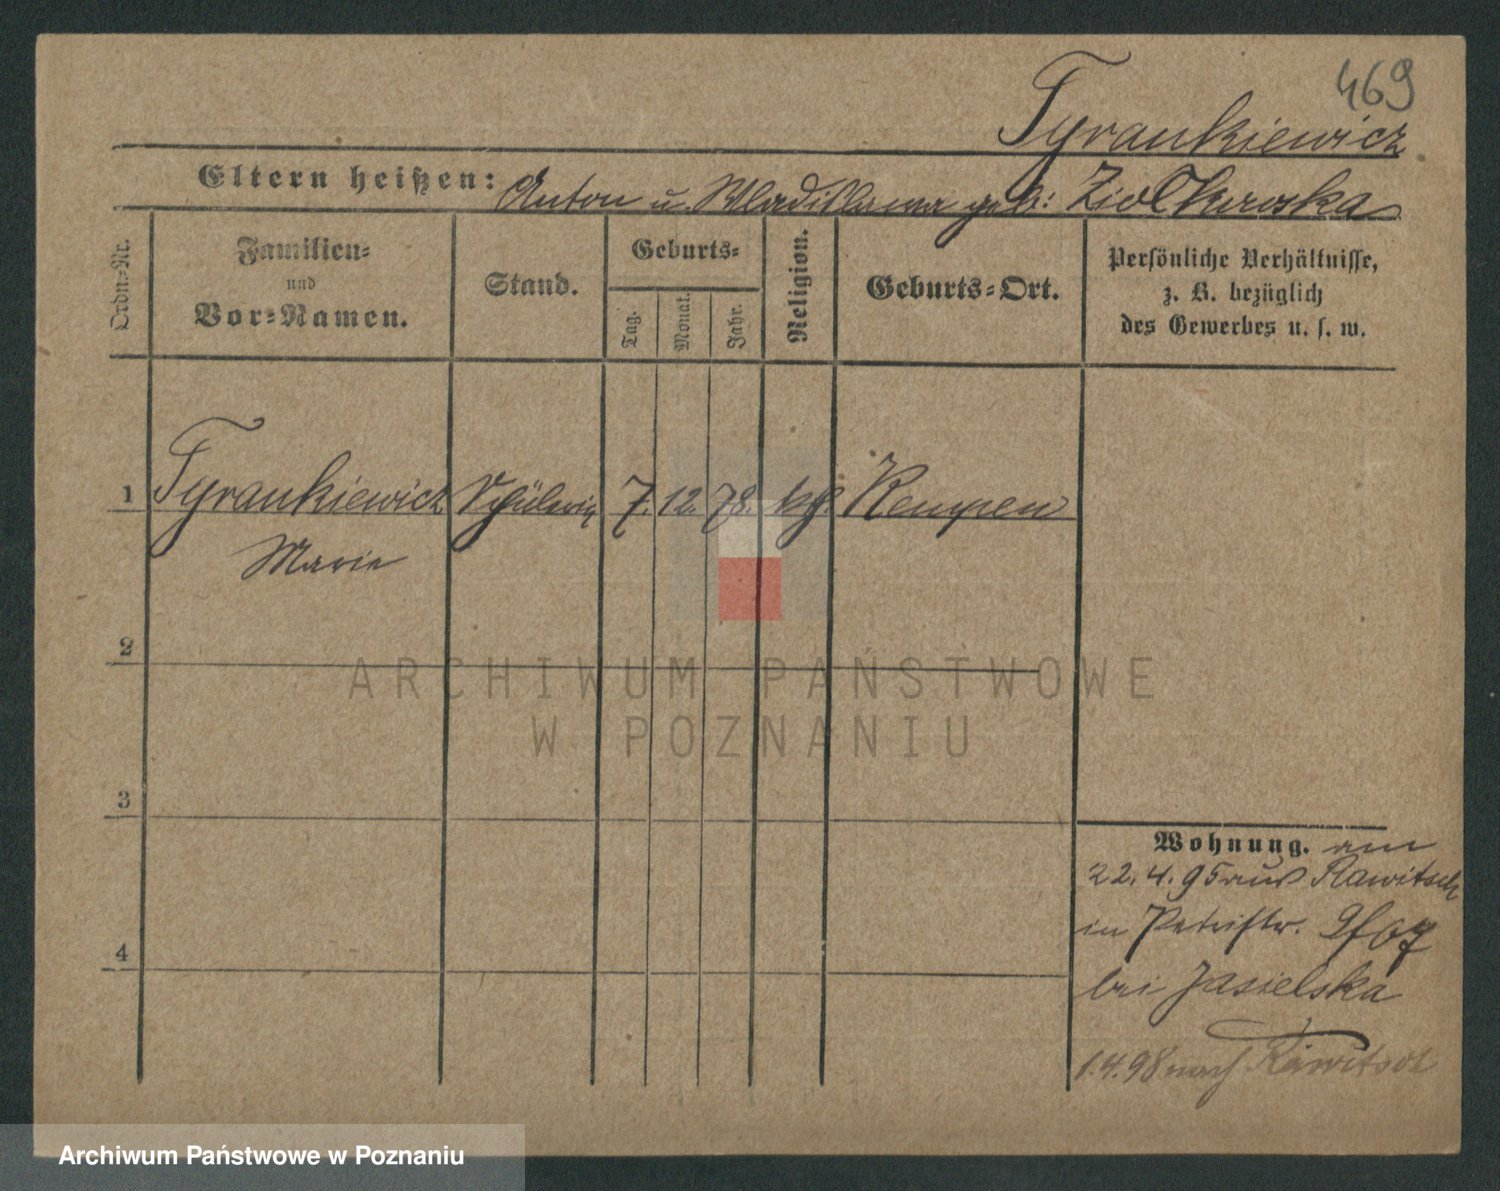 469
Tyrankiewicz
Eltern heißen: Anton u. Wladislawa geb: Ziolkowska
Ordn.-Nr.
Familien-
und
Vor-Namen.
Stand.
Geburts-
Tag.
Monat.
Jahr.
Religion.
Geburts-Ort.
Persönliche Verhältnisse,
z. B. bezüglich
des Gewerbes u. s. w.
1 Tyrankiewicz Schülerin 7. 12. 78. kth. Kempen
Marie
2
3
4
Wohnung. am
22.4.95 aus Rawitsch
in Petristr.
bei Jasielska
1.4.98 nach Rawitsch
ARCHIWUM PAŃSTWOWE
W POZNANIU
Archiwum Państwowe w Poznaniu